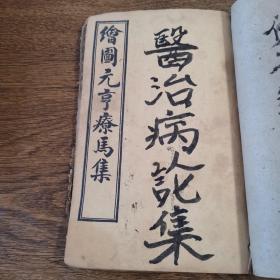 醫治病人訟集
繪圖元亨療馬集